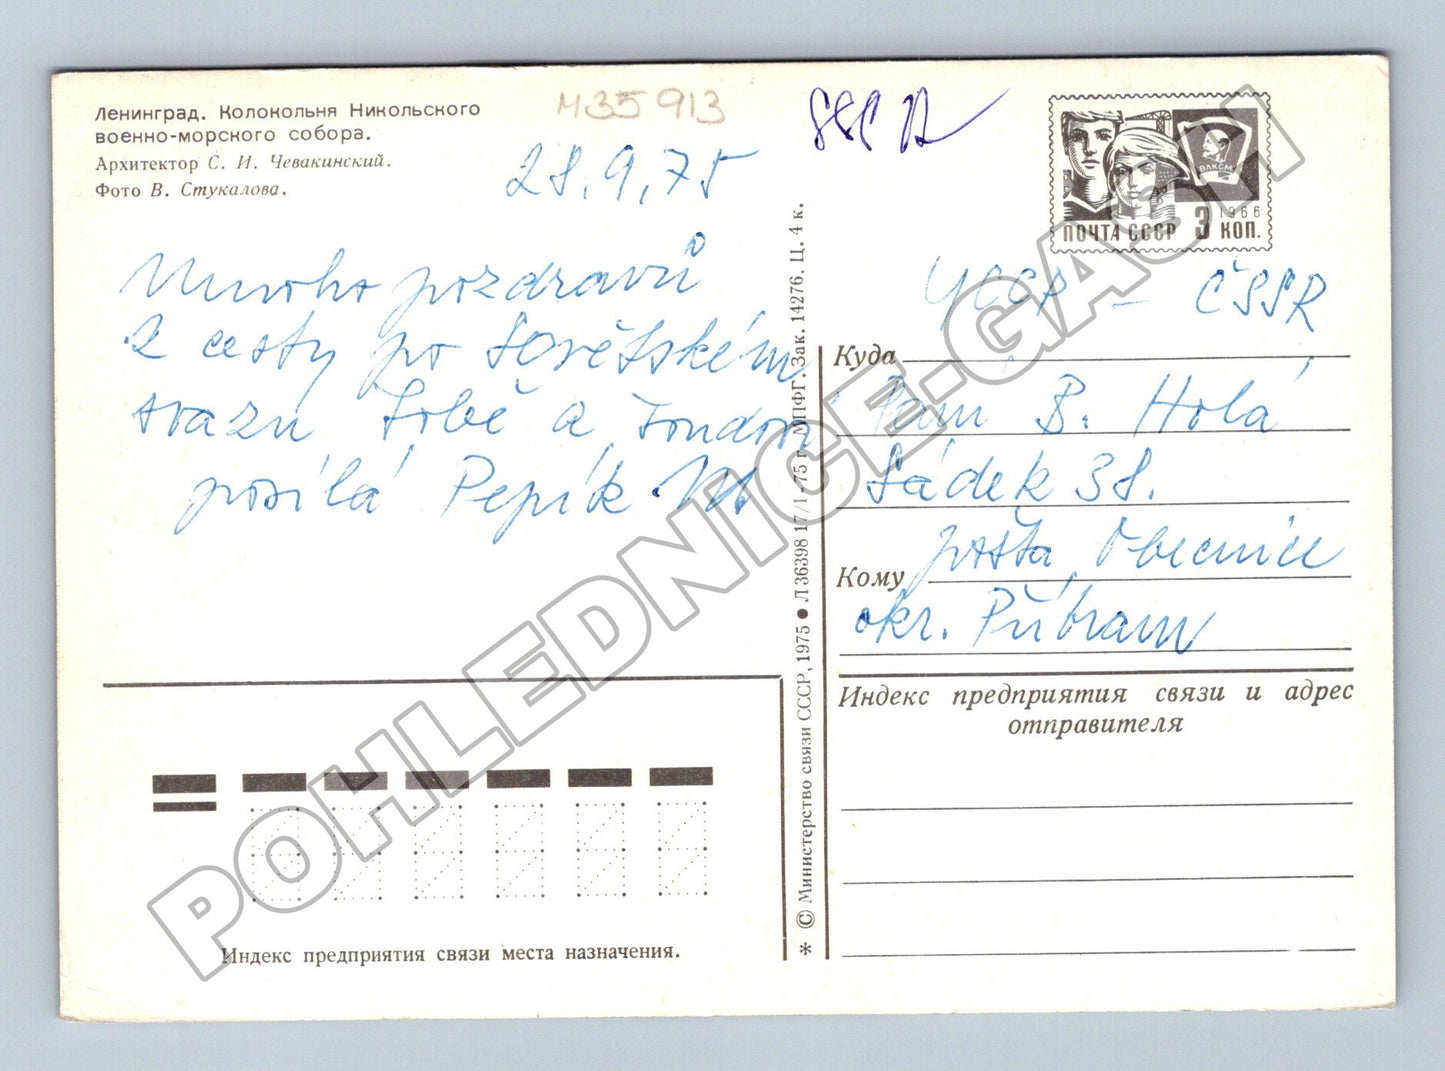 Ленинград. Колокольня Никольского
военно-морского собора.
Архитектор С. И. Чевакинский.
Фото В. Стукалова.
M35 913
28.9.75
Mnoho pozdravů
z cesty po Sovětském
svazu Tobě a
posílá Pepík
ВЛКСМ
1966
ПОЧТА СССР 3 КОП.
ČSSR
Куда
Paní B. Holá
Sádek 38.
pošta Obecnice
Кому
okr. Příbram
Индекс предприятия связи и адрес
отправителя
* © Министерство связи СССР, 1975 ● Л 36398 17/I-75 г. МПФГ. Зак. 14276. Ц. 4 к.
Индекс предприятия связи места назначения.
POHLEDNICE-GASH